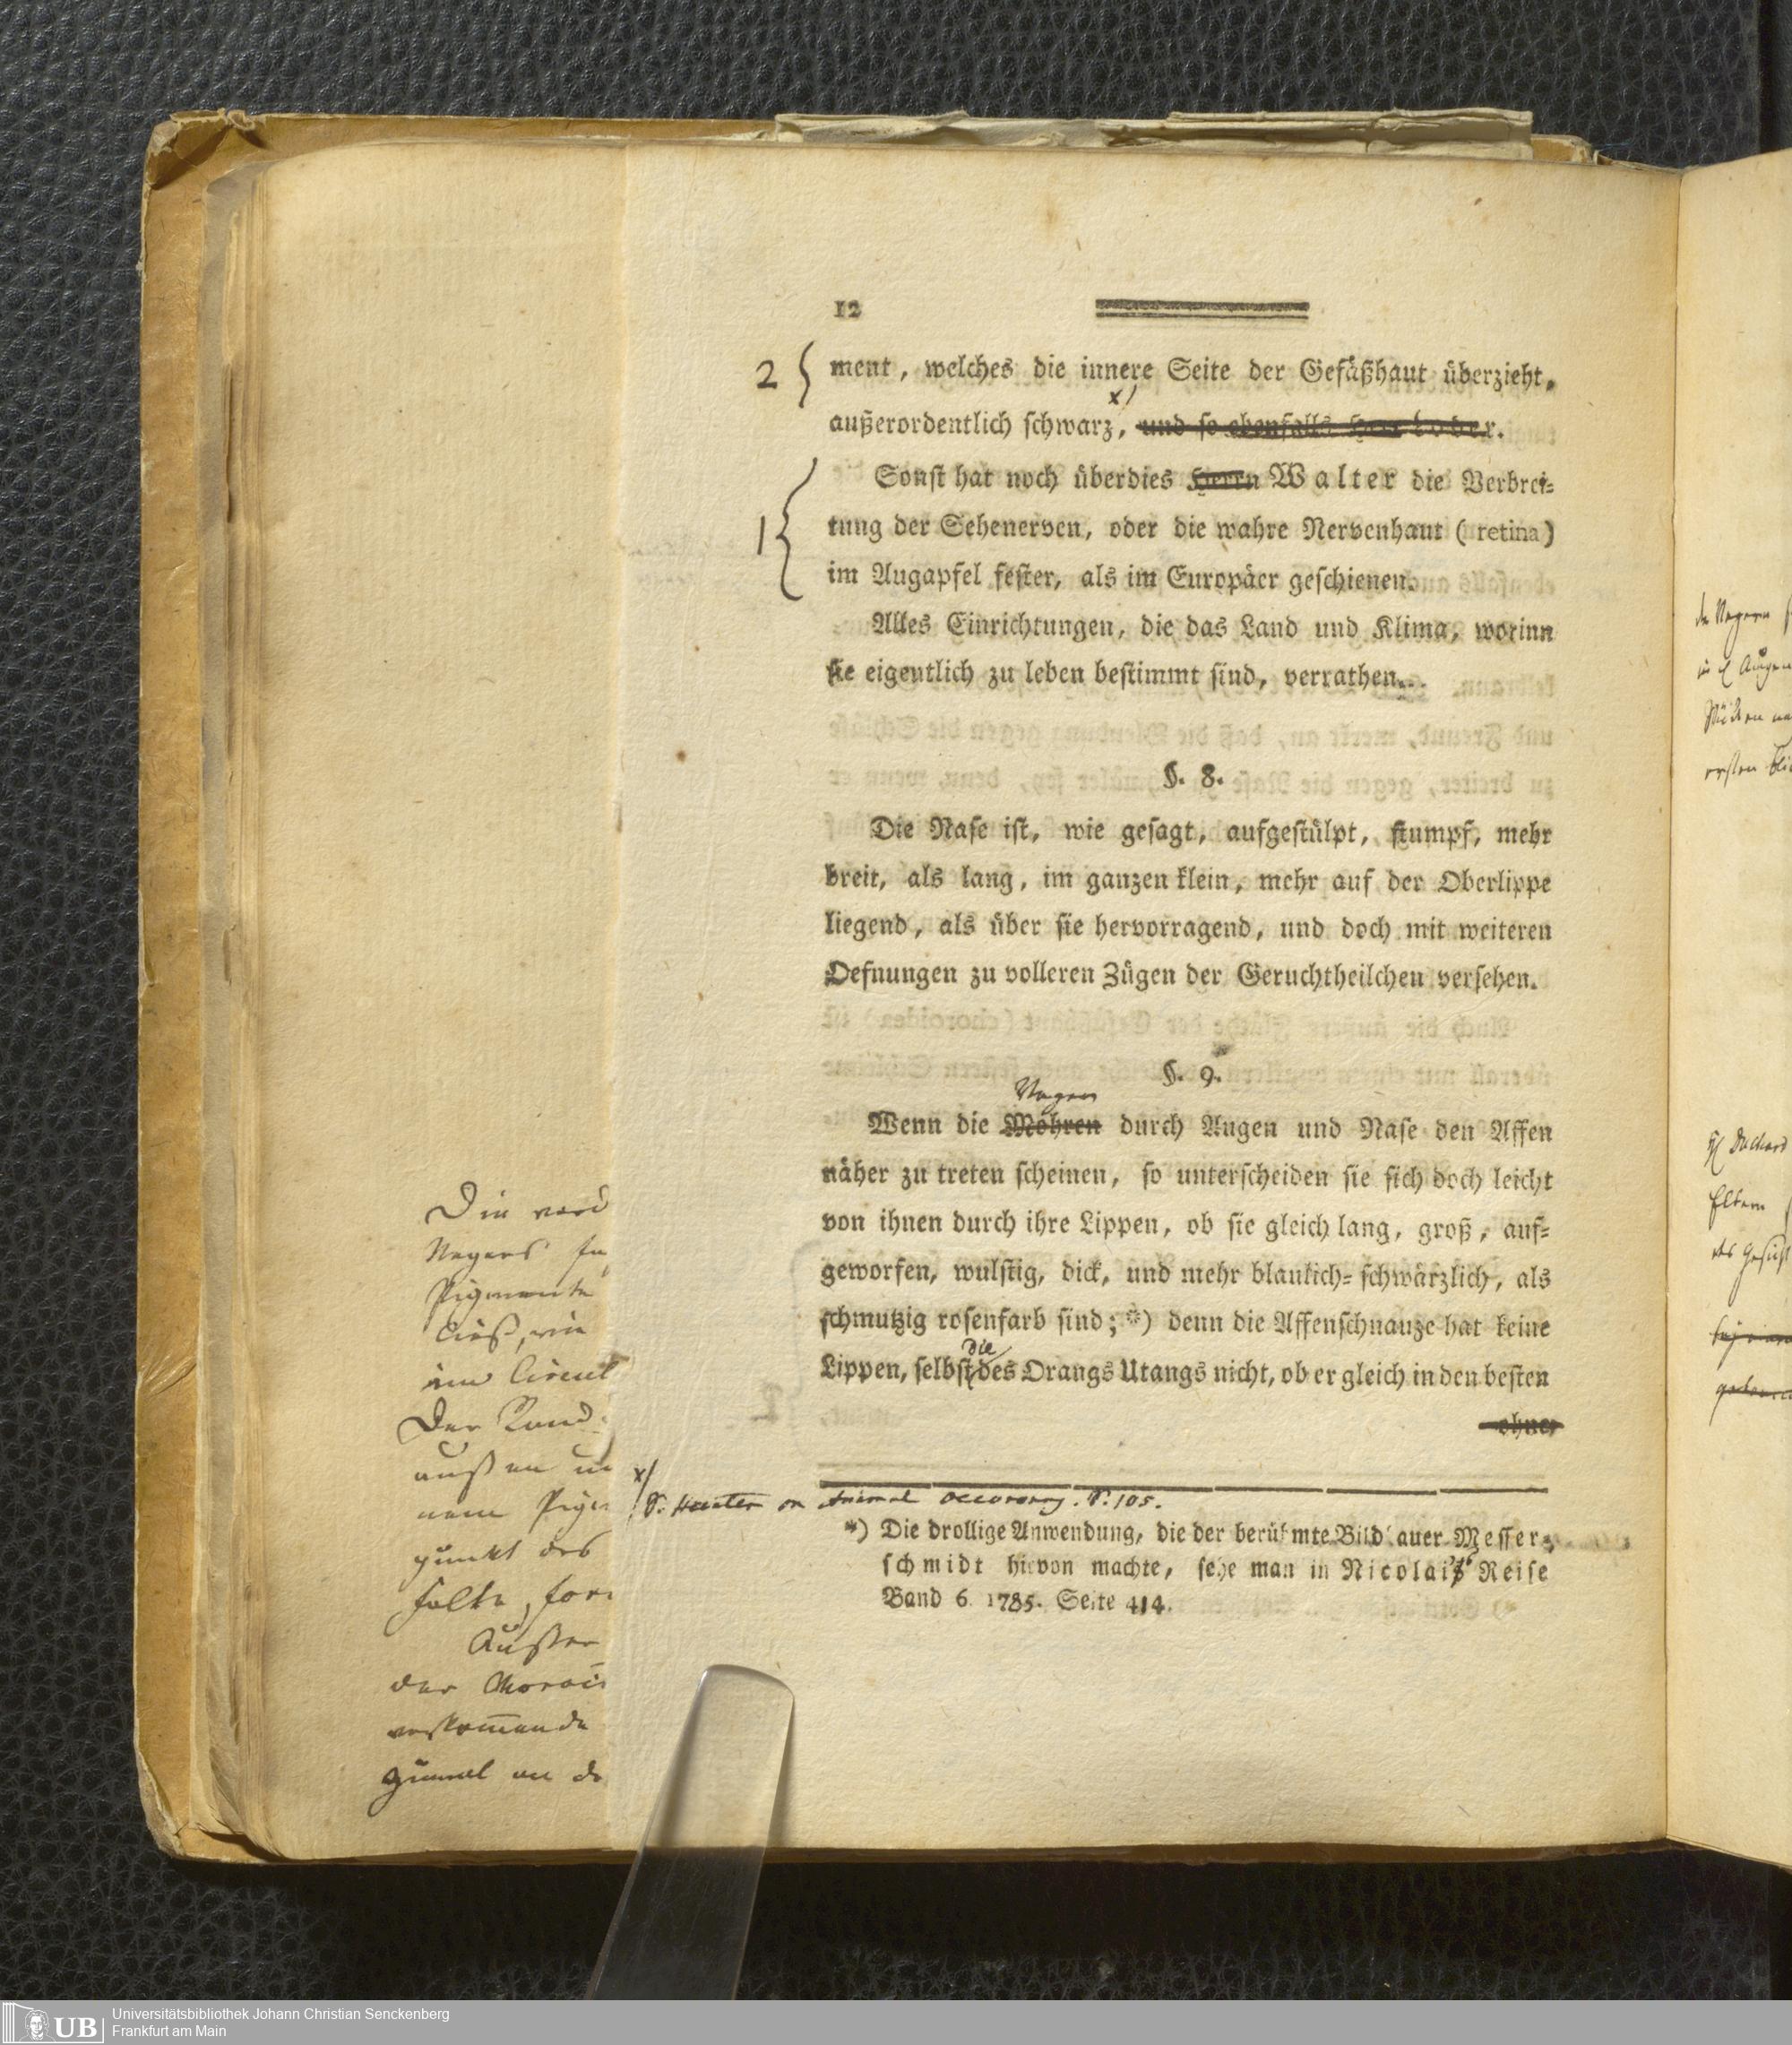 12
2 ment, welches die innere Seite der Gefäßhaut überzieht,
x/
außerordentlich schwarz, und so ebenfalls Herr r.
Sonst hat noch überdies Herrn Walter die Verbrei-
1 tung der Sehenerven, oder die wahre Nervenhaut (retina)
im Augapfel fester, als im Europäer geschienen.
Alles Einrichtungen, die das Land und Klima, worinn
sie eigentlich zu leben bestimmt sind, verrathen...
§. 8.
Die Nase ist, wie gesagt, aufgestülpt, stumpf, mehr
breit, als lang, im ganzen klein, mehr auf der Oberlippe
liegend, als über sie hervorragend, und doch mit weiteren
Oefnungen zu volleren Zügen der Geruchtheilchen versehen.
§. 9.
Neger
Wenn die Mohren durch Augen und Nase den Affen
näher zu treten scheinen, so unterscheiden sie sich doch leicht
von ihnen durch ihre Lippen, ob sie gleich lang, groß, auf-
geworfen, wulstig, dick, und mehr blaulich-schwärzlich, als
schmutzig rosenfarb sind; *) denn die Affenschnauze hat keine
die
Lippen, selbst des Orangs Utangs nicht, ob er gleich in den besten
ohne
x/ S. Hunter on Animal Oeconomy. S. 105.
*) Die drollige Anwendung, die der berühmte Bildhauer Messer-
schmidt hievon machte, sehe man in Nicolai's Reise
Band 6. 1785. Seite 414.
Die vord
Negers
Pigmente
ließ, wie
im Circul
Der Rand
außen
nem Pigm
punkt des
falte,
Außer
der Choroi
vorkommende
zumal an de
in Augen
ersten
Eltern
des Gesicht
Universitätsbibliothek Johann Christian Senckenberg
UB Frankfurt am Main